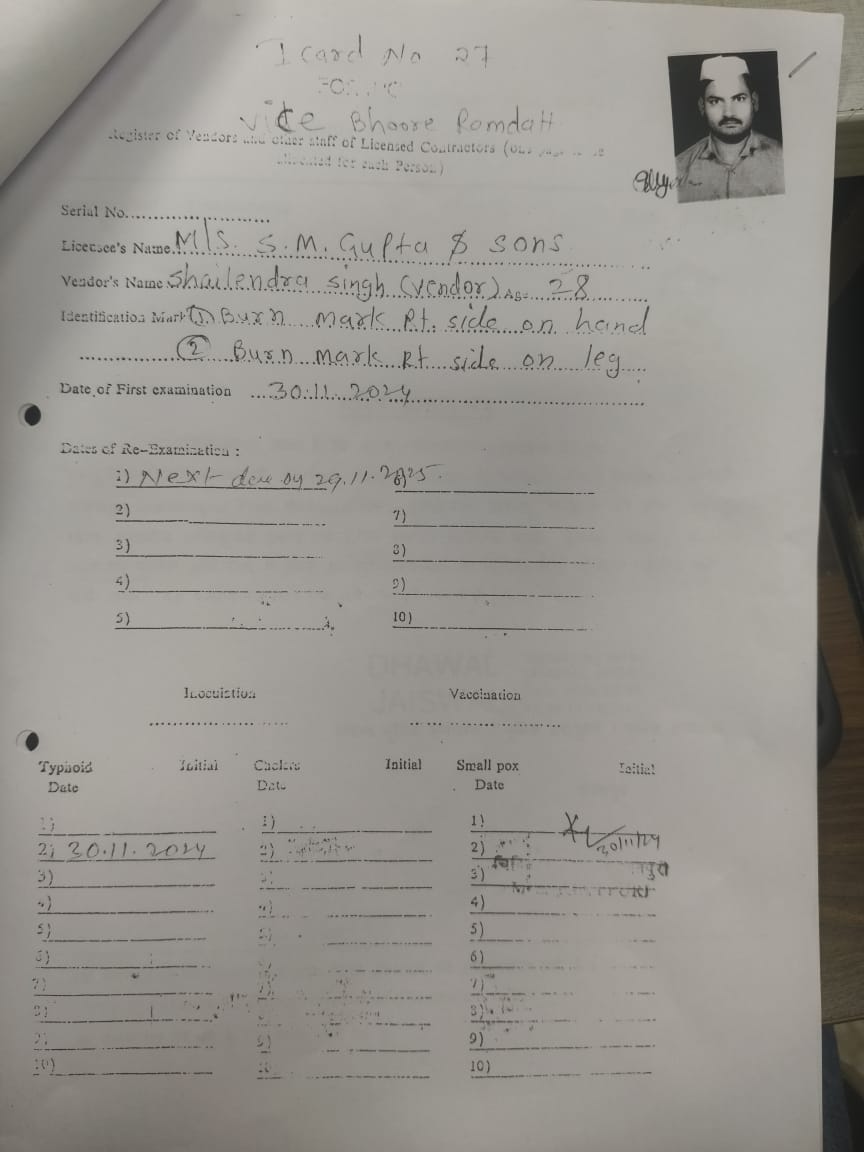 I card No 27
Vice Bhoore Ramdatt
Register of Vendors and other staff of Licensed Contractors (one page to be
allocated for each Person)
Serial No..........................
Licensee's Name M/S. S.M. Gupta & sons
Vendor's Name Shailendra singh (vendor) Age 28
Identification Mark ① Burn mark Rt. side on hand
② Burn mark Rt side on leg
Date of First examination 30.11.2024
Dates of Re-Examination :
1) Next due by 29.11.2025. 6)
2) 7)
3) 8)
4) 9)
5) 10)
Inoculation Vaccination
Typhoid Initial Cholera Initial Small pox Initial
Date Date Date
1) 1) 1)
2) 30.11.2024 2) 2) 30/11/24
3) 3) 3)
4) 4) 4)
5) 5) 5)
6) 6)
7) 7) 7)
8) 8)
9) 9) 9)
10) 10 10)